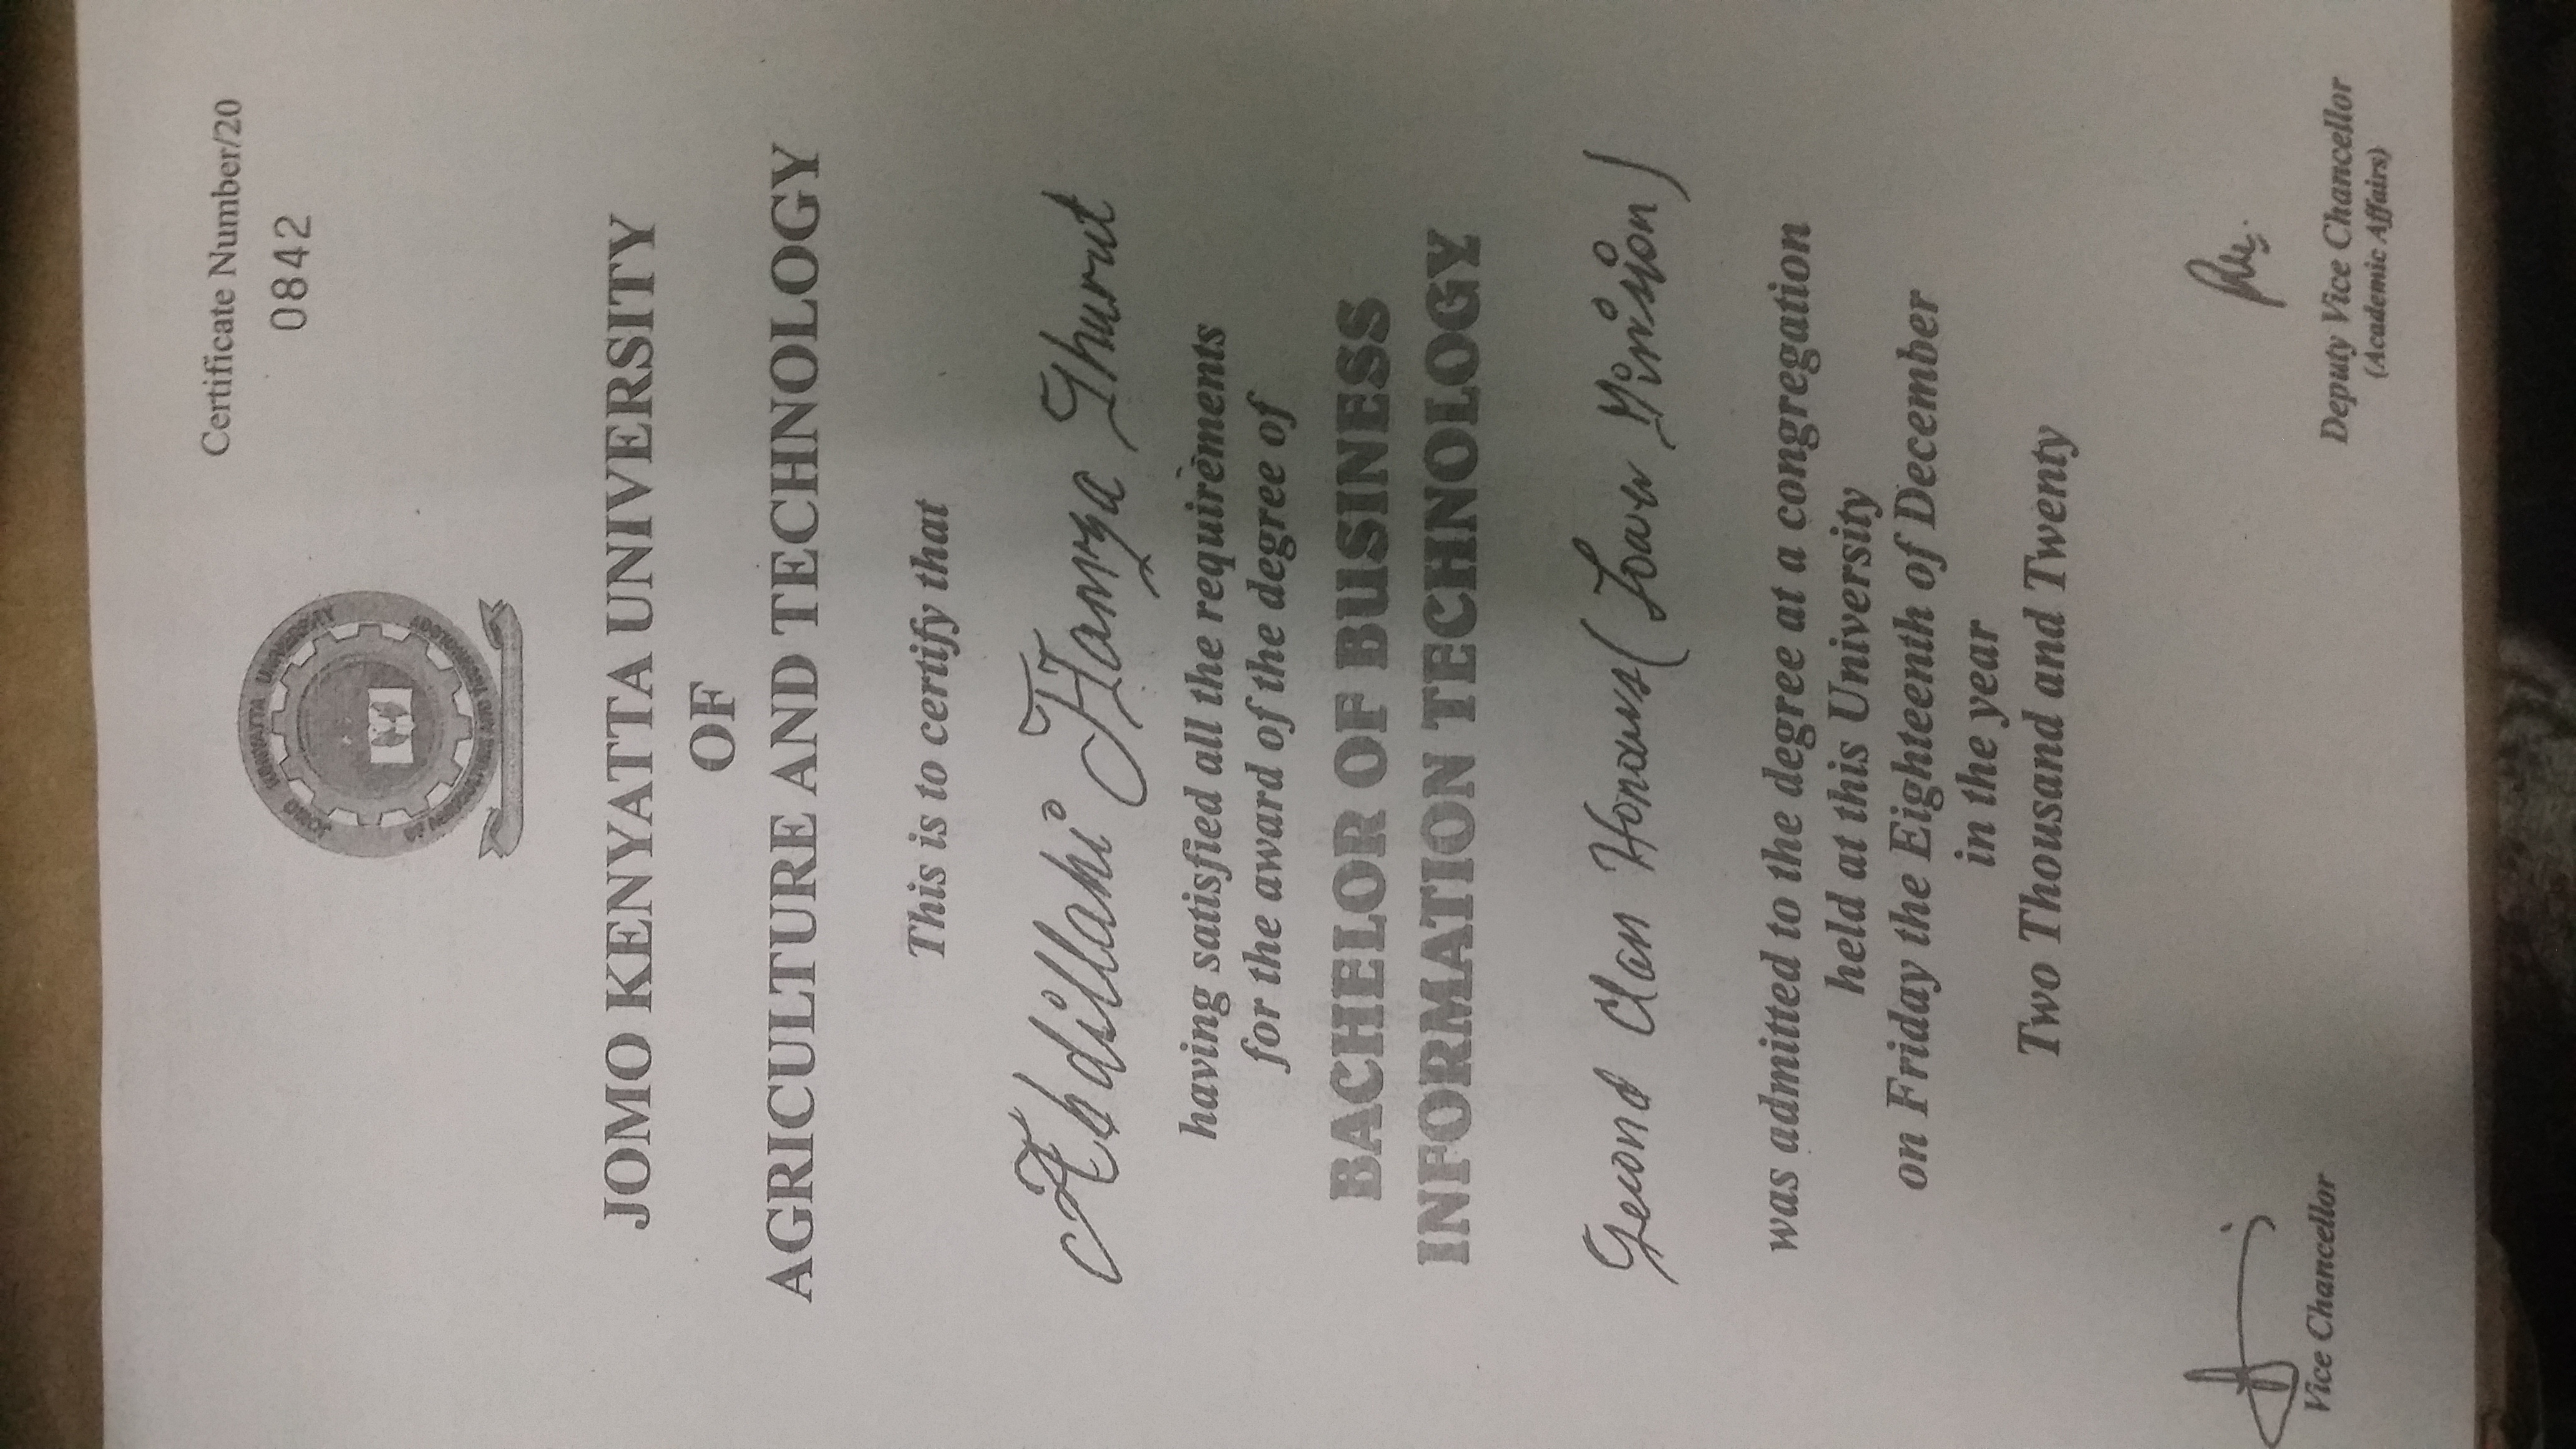 Certificate Number/20
0842
JOMO KENYATTA UNIVERSITY
OF AGRICULTURE AND TECHNOLOGY
JOMO KENYATTA UNIVERSITY
OF
AGRICULTURE AND TECHNOLOGY
This is to certify that
Abdillahi Hamza Shurut
having satisfied all the requirements
for the award of the degree of
BACHELOR OF BUSINESS
INFORMATION TECHNOLOGY
Second Class Honours (Lower Division)
was admitted to the degree at a congregation
held at this University
on Friday the Eighteenth of December
in the year
Two Thousand and Twenty
Vice Chancellor
Deputy Vice Chancellor
(Academic Affairs)